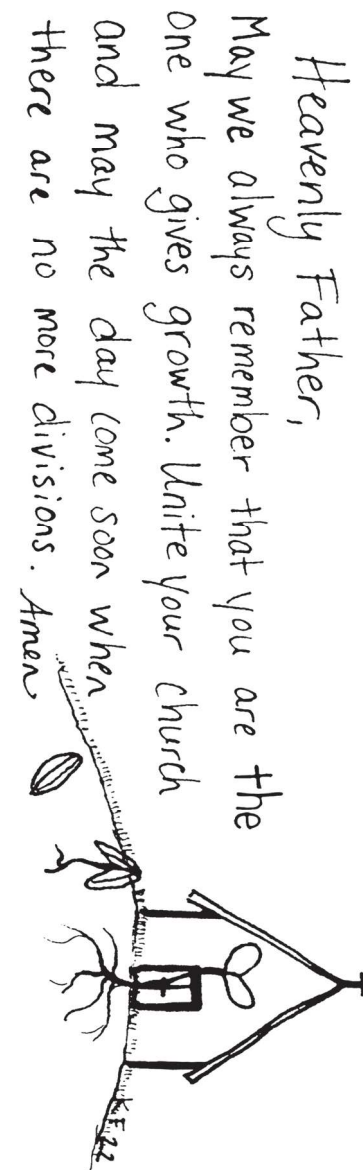 Heavenly Father,
May we always remember that you are the
one who gives growth. Unite your church
and may the day come soon when
there are no more divisions. Amen
KF22